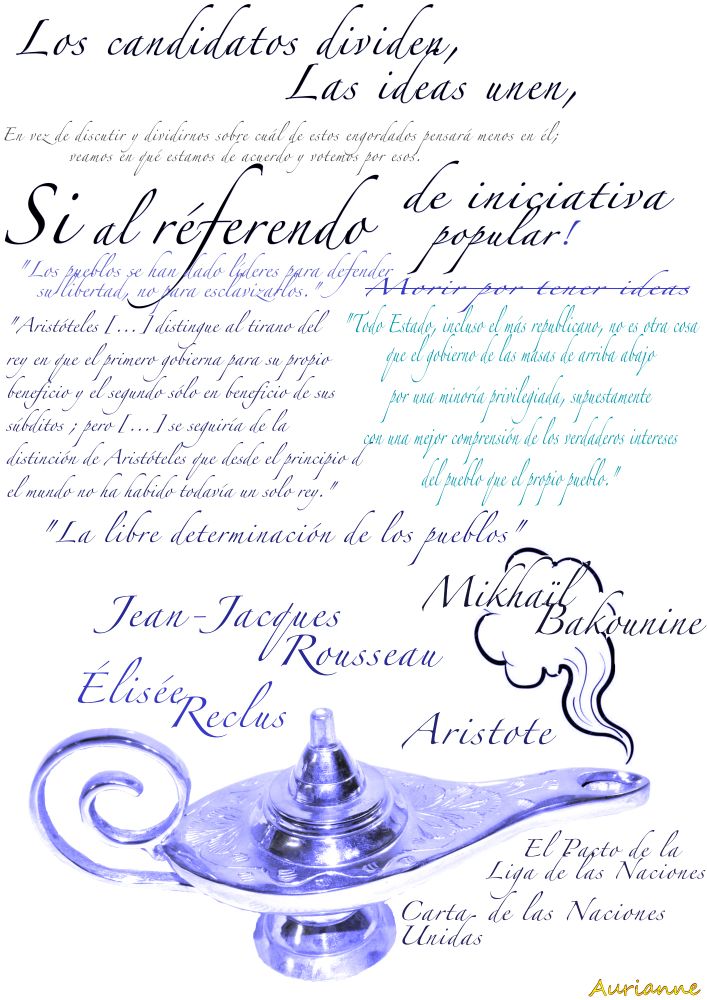 Los candidatos dividen,
Las ideas unen,
En vez de discutir y dividirnos sobre cuál de estos engordados pensará menos en él;
veamos en qué estamos de acuerdo y votemos por esos.
Si al réferendo
de iniciativa
popular!
"Los pueblos se han dado líderes para defender
su libertad, no para esclavizarlos."
Morir por tener ideas
"Aristóteles [...] distingue al tirano del
rey en que el primero gobierna para su propio
beneficio y el segundo sólo en beneficio de sus
súbditos ; pero [...] se seguiría de la
distinción de Aristóteles que desde el principio d
el mundo no ha habido todavía un solo rey."
"Todo Estado, incluso el más republicano, no es otra cosa
que el gobierno de las masas de arriba abajo
por una minoría privilegiada, supuestamente
con una mejor comprensión de los verdaderos intereses
del pueblo que el propio pueblo."
"La libre determinación de los pueblos"
Mikhaïl
Bakounine
Jean-Jacques
Rousseau
Élisée
Reclus
Aristote
El Pacto de la
Liga de las Naciones
Carta de las Naciones
Unidas
Aurianne